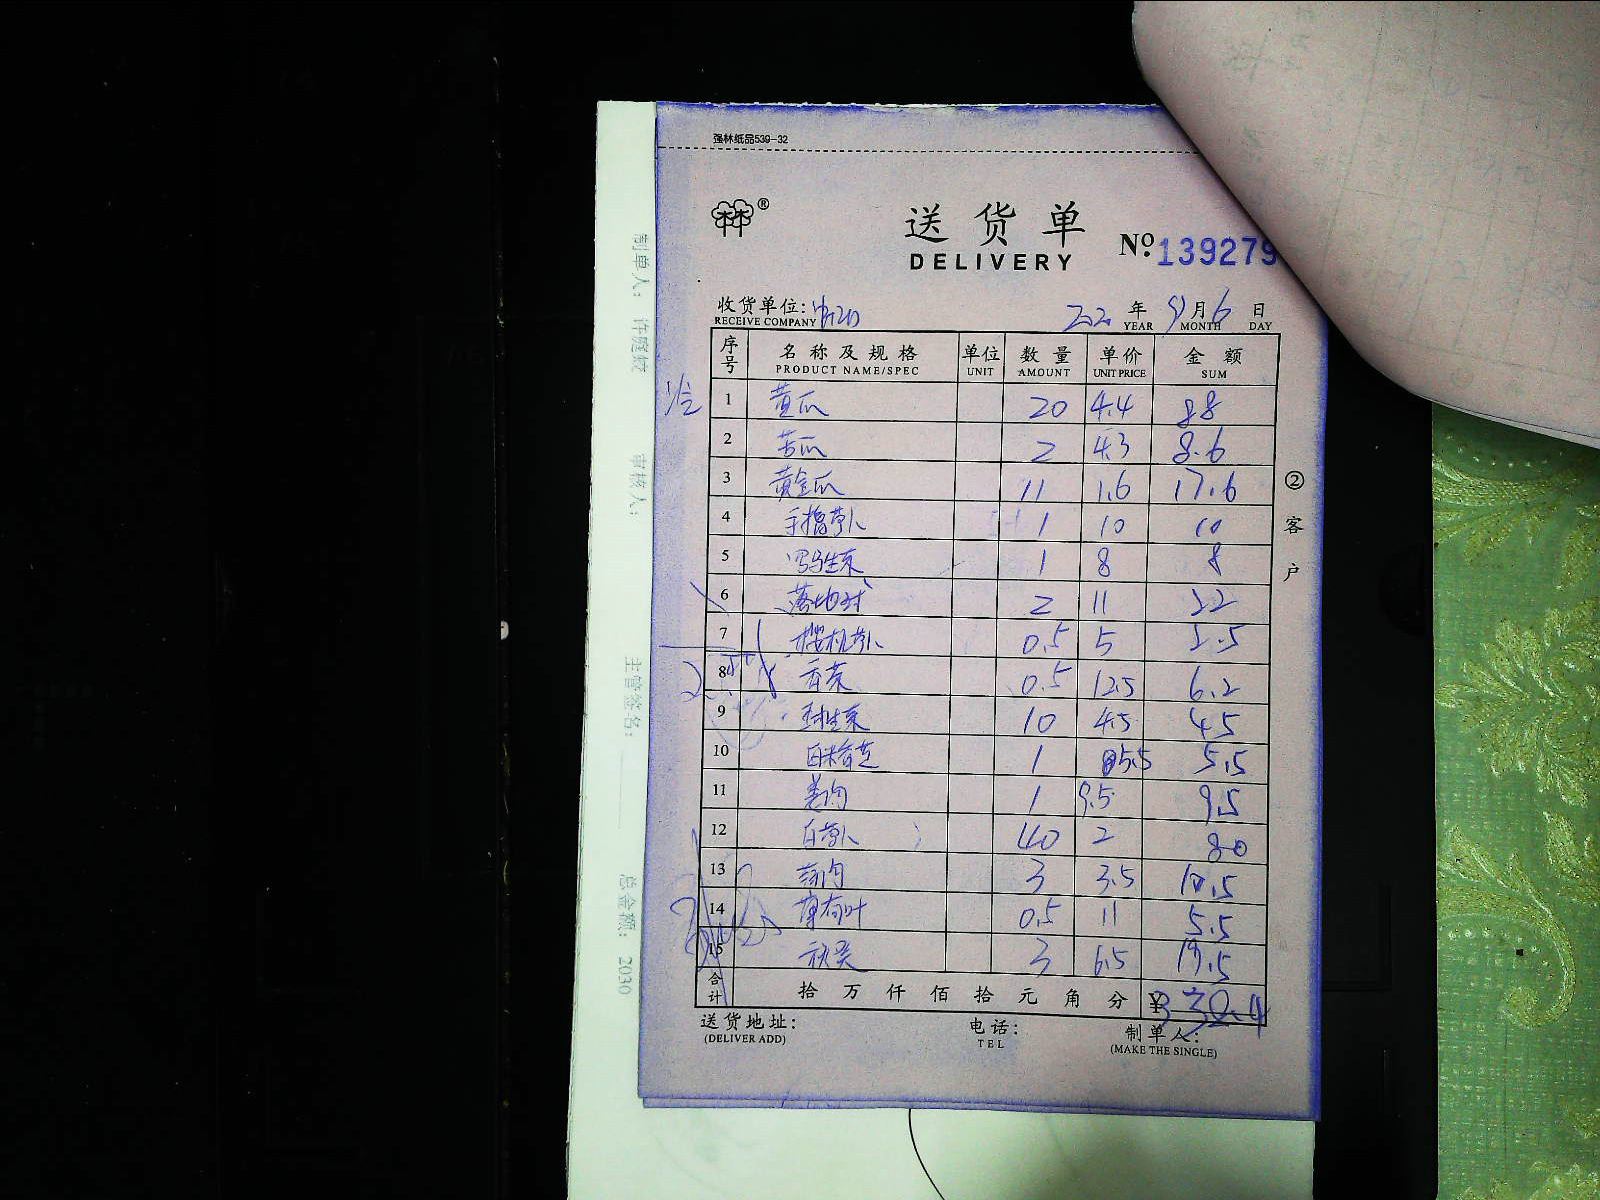 强林纸品539-32
送货单
DELIVERY
№:139279
收货单位:
RECEIVE COMPANY
年 9月6日
YEAR MONTH DAY
序号 名称及规格 单位 数量 单价 金额
PRODUCT NAME/SPEC UNIT AMOUNT UNIT PRICE SUM
1 黄瓜 20 4.4 88
2 苦瓜 2 4.3 8.6
3 黄金瓜 11 1.6 17.6
4 1 10 10
5 1 8 8
6 2 11 22
7 0.5 5 2.5
8 香菜 0.5 12.5 6.2
9 球生菜 10 4.5 45
10 1 5.5 5.5
11 姜肉 1 9.5 9.5
12 40 2 80
13 蒜肉 3 3.5 10.5
14 薄荷叶 0.5 11 5.5
15 秋葵 3 6.5 19.5
合计 拾万仟佰拾元角分 ¥
送货地址:
(DELIVER ADD)
电话:
TEL
制单人:
(MAKE THE SINGLE)
②客户
制单人:
审核人:
主管签名:
总金额: 2030